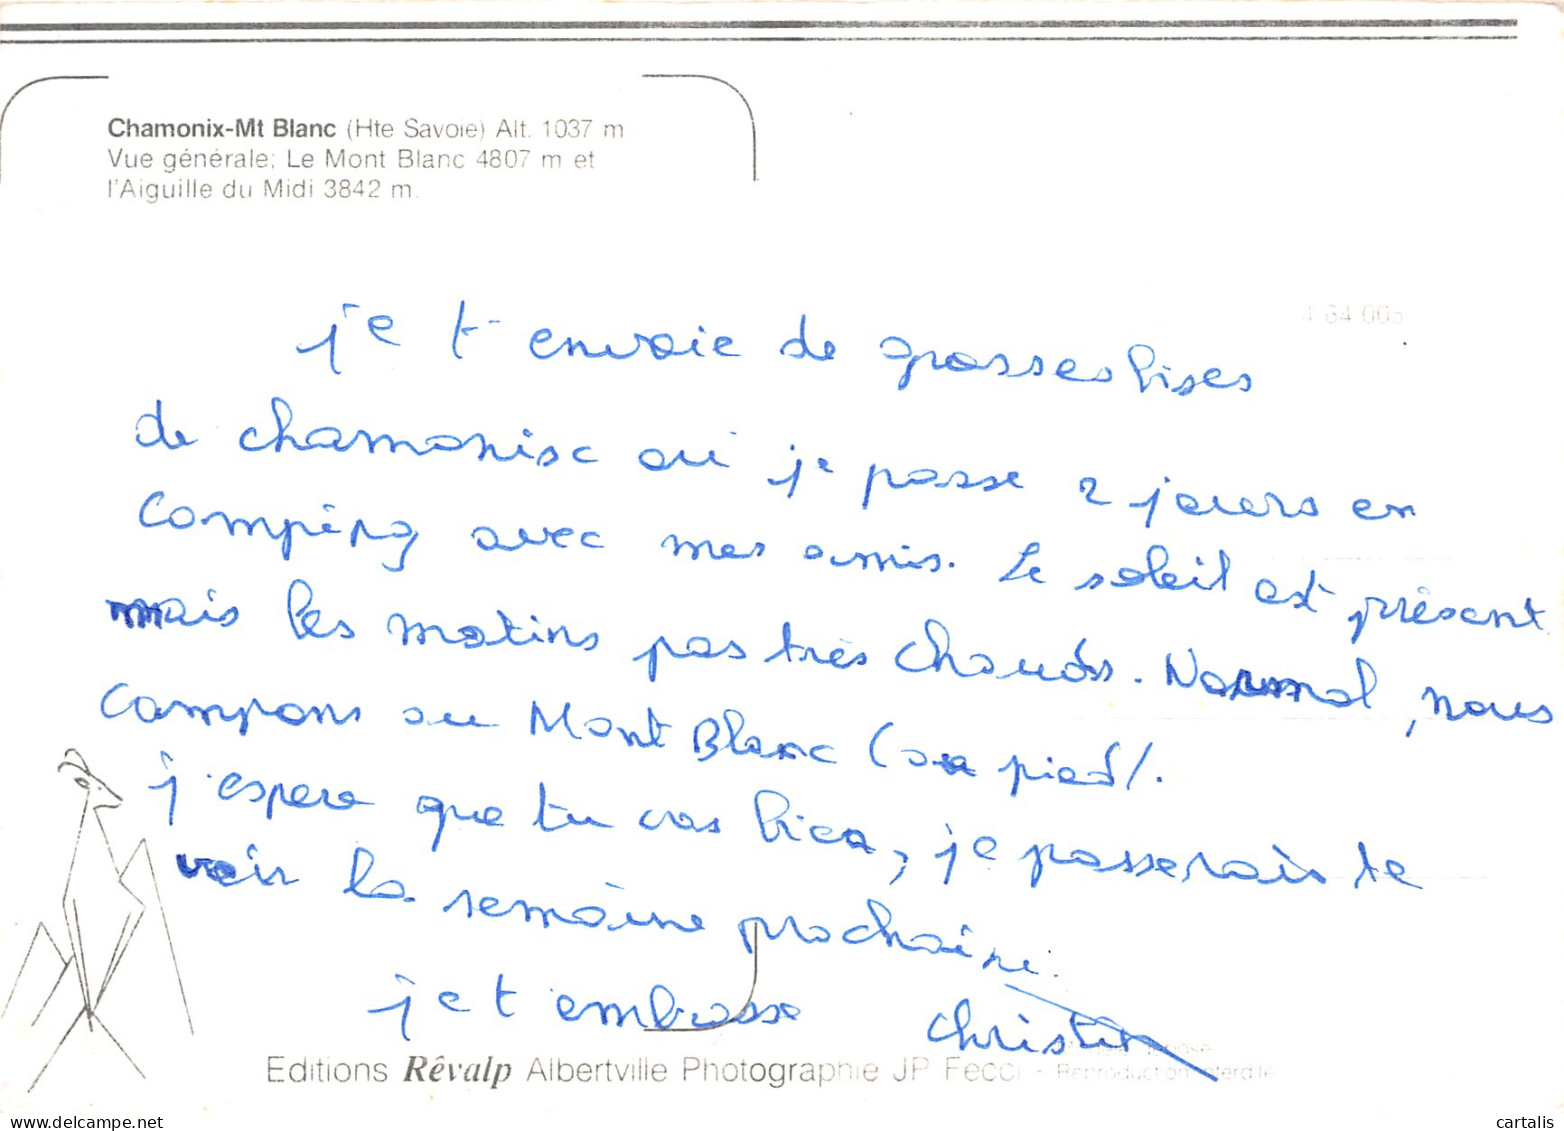 Chamonix-Mt Blanc (Hte Savoie) Alt. 1037 m
Vue générale; Le Mont Blanc 4807 m et
l'Aiguille du Midi 3842 m.
je t'envoie de grosses bises
de chamonix où je passe 2 jours en
camping avec mes amis. Le soleil est présent
mais les matins pas très chauds. Normal, nous
campons au Mont Blanc (au pied).
j'espere que tu vas bien, je passerais te
voir la semaine prochaine.
je t'embrasse Christin
Editions Rêvalp Albertville Photographie JP Fecci - Reproduction interdite
cartalis
delcampe.net